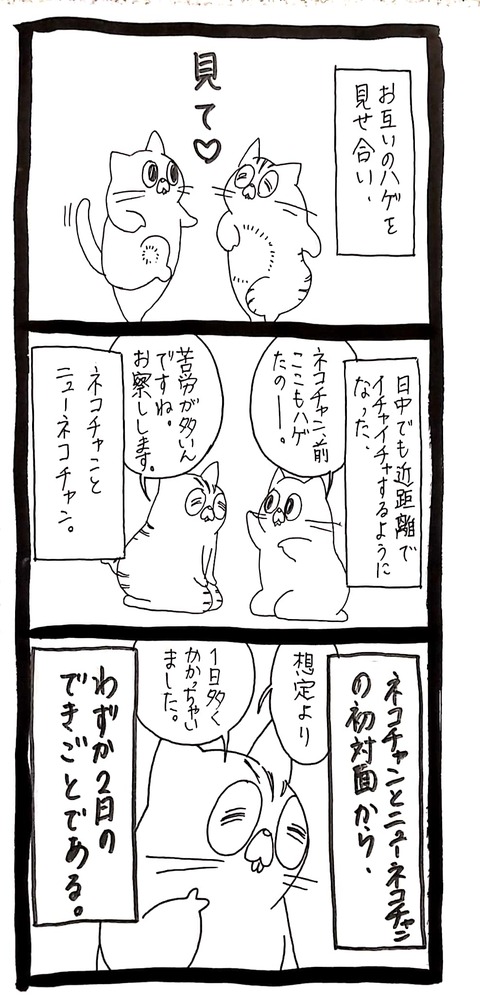 お互いのハゲを
見せ合い、
見て♡
日中でも近距離で
イチャイチャするように
なった、
ネコチャン、前
ここもハゲ
たのー。
苦労が多いん
ですね。
お察しします。
ネコチャンと
ニューネコチャン。
ネコチャンとニューネコチャン
の初対面から、
想定より
1日多く
かかっちゃい
ました。
わずか2日の
できごとである。